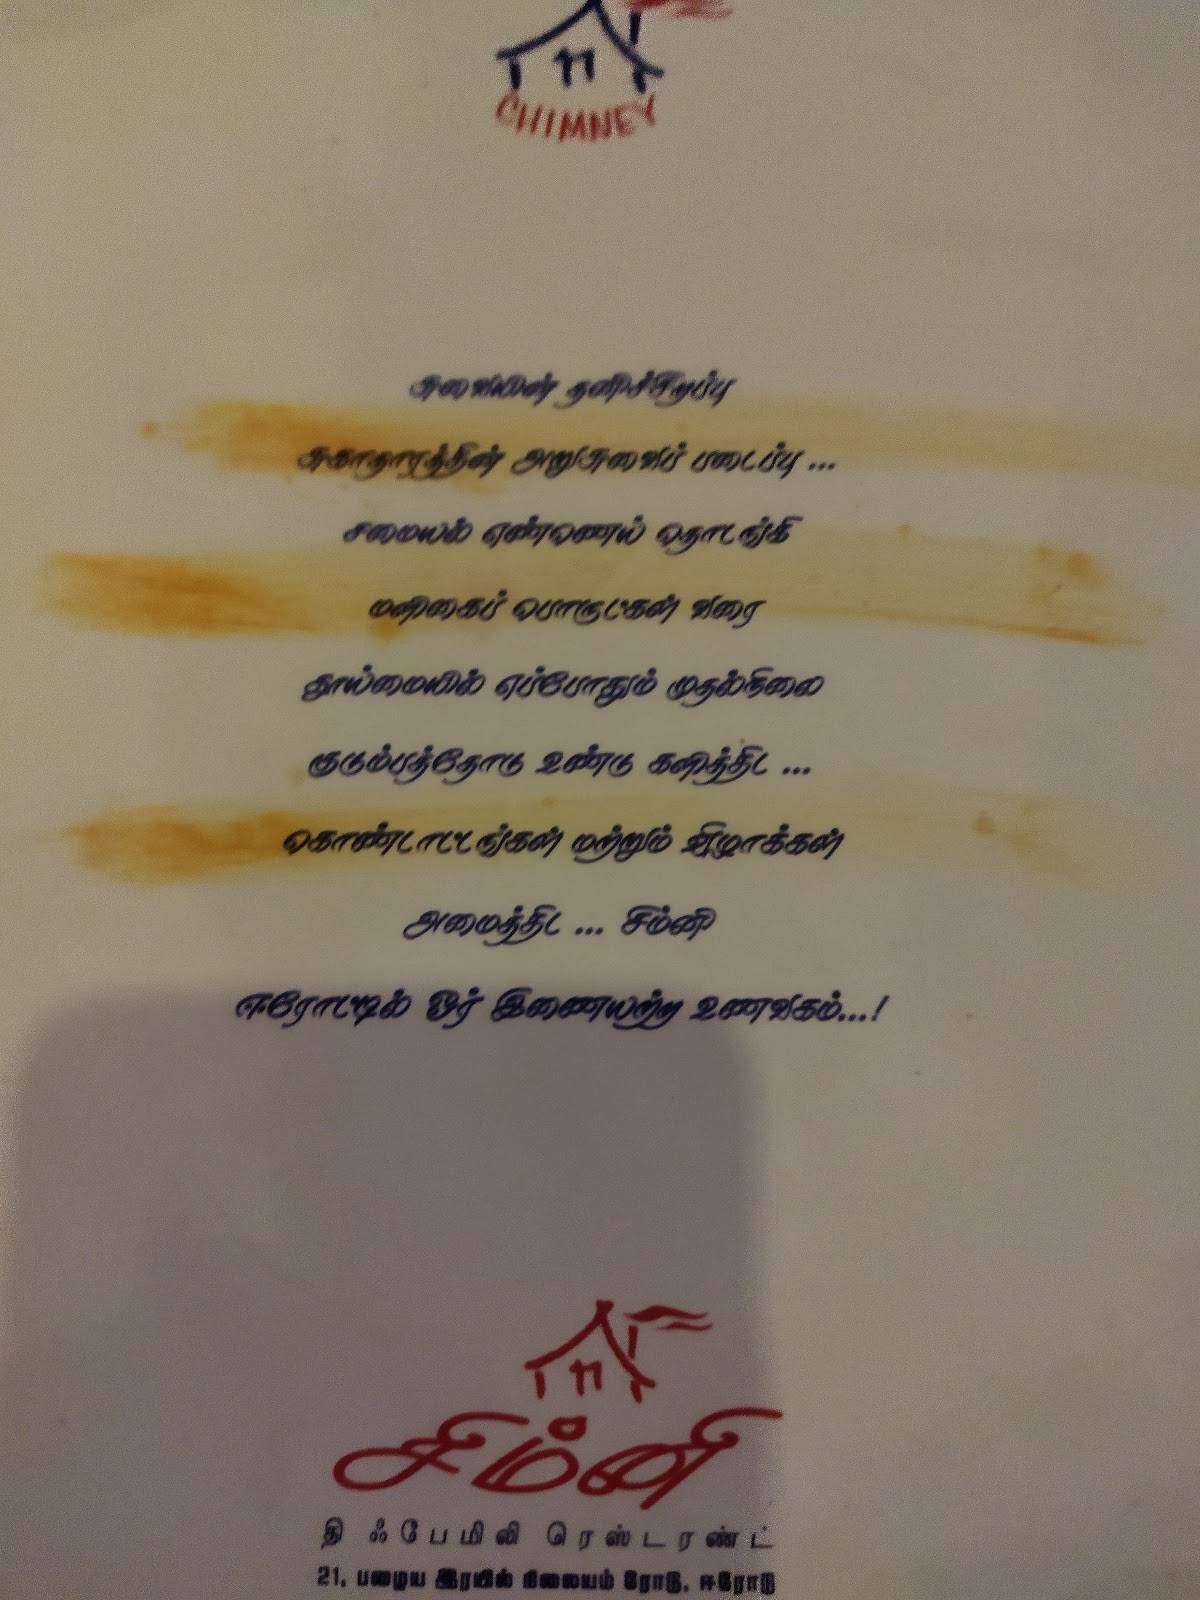 CHIMNEY
சுவையின் தனிச்சிறப்பு
சுகாதாரத்தின் அறுசுவைப் படைப்பு ...
சமையல் எண்ணெய் தொடங்கி
மளிகைப் பொருட்கள் வரை
தூய்மையில் எப்போதும் முதல்நிலை
குடும்பத்தோடு உண்டு களித்திட ...
கொண்டாட்டங்கள் மற்றும் விழாக்கள்
அமைத்திட ... சிம்னி
ஈரோட்டில் ஓர் இணையற்ற உணவகம்...!
சிம்னி
தி ஃபேமிலி ரெஸ்டரண்ட்
21, பழைய இரயில் நிலையம் ரோடு, ஈரோடு